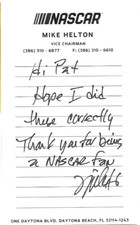 NASCAR
MIKE HELTON
VICE CHAIRMAN
(386) 310-6877 F: (386) 310-9610
Hi Pat
Hope I did
these correctly
Thank you for being
a NASCAR Fan
ONE DAYTONA BLVD. DAYTONA BEACH, FL 32114-1243